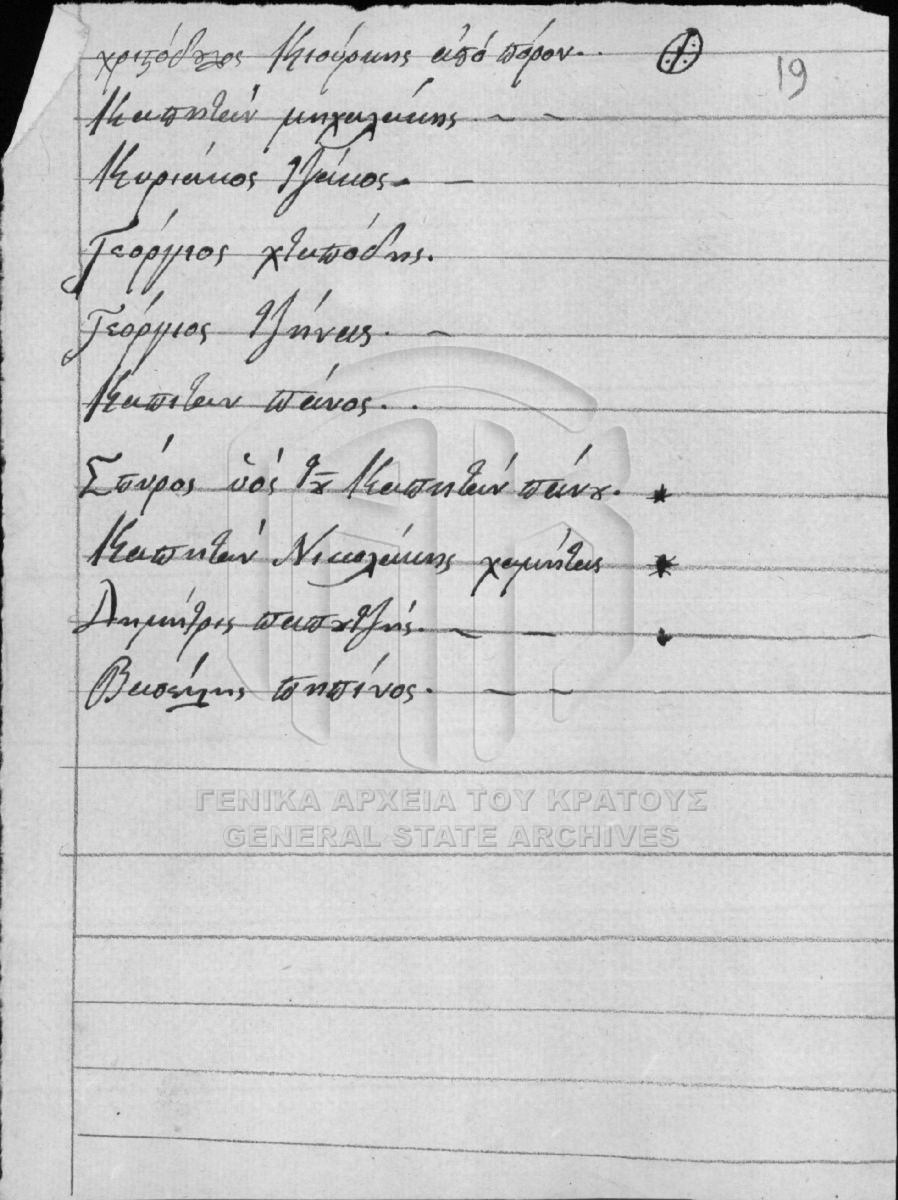 χριςόδȣλος Κιούρκης ἀπὸ πόρον..
19
Καπητὰν μιχαλάκης.
Κυριάκος τζάκος.
Γεόργιος χταπόδης.
Γεόργιος τζήνας.
Καπιταν πάνος..
Σπύρος ὑός τȣ Καπητάν πάνȣ.
Καπητάν Νικολάκης χαμήτας
Δημήτρις παπȣτζής.
Βασείλης πηπίνος.
ΓΕΝΙΚΑ ΑΡΧΕΙΑ ΤΟΥ ΚΡΑΤΟΥΣ
GENERAL STATE ARCHIVES